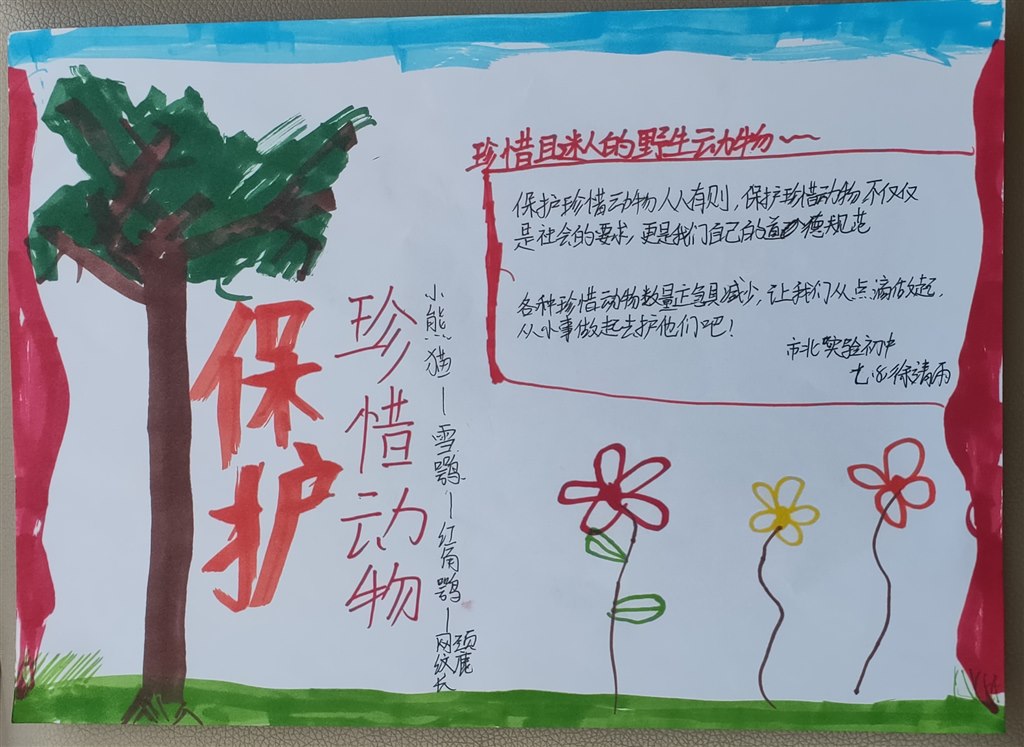 保护
珍惜动物
小熊猫—雪鹗—红角鹗—网纹长颈鹿
珍惜且迷人的野生动物~~
保护珍惜动物人人有则,保护珍惜动物不仅仅
是社会的要求,更是我们自己的道德规范
各种珍惜动物数量正急具减少,让我们从点滴做起,
从小事做起去护他们吧!
市北实验初中
七.8 徐靖雨